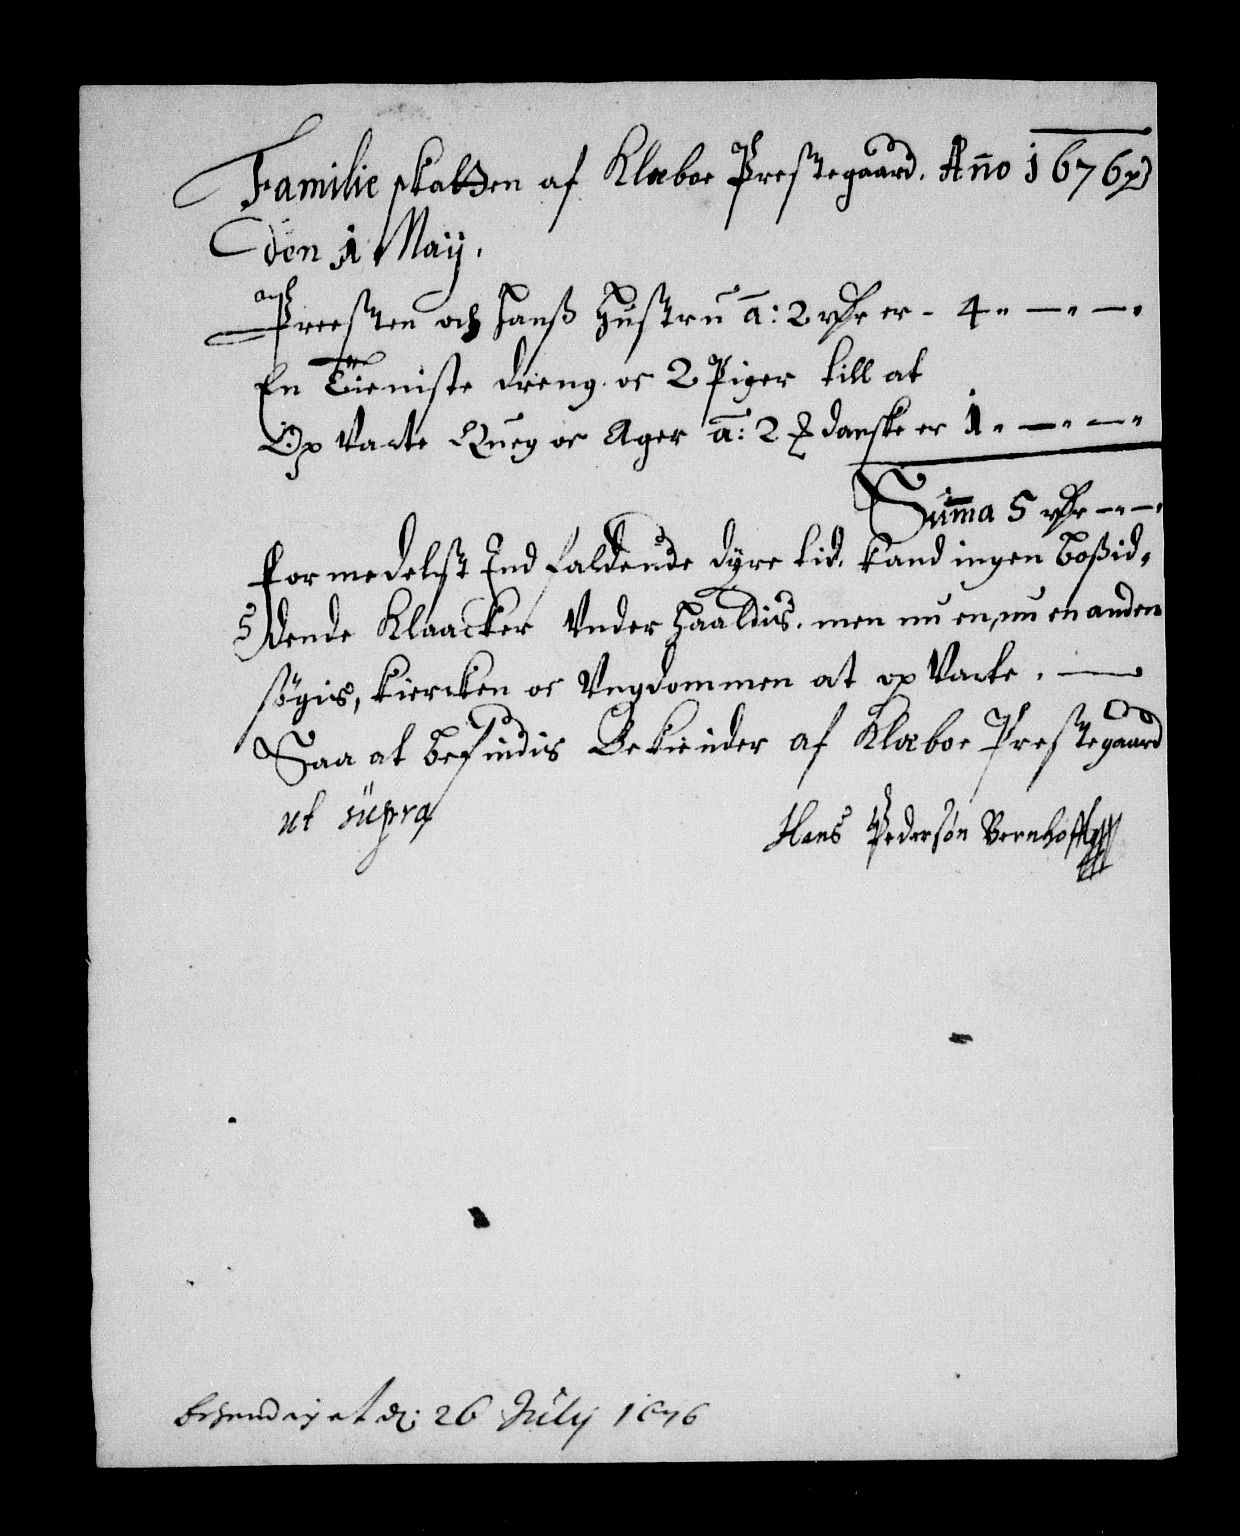 Familie skatten af Klæboe Prestegaard. Año 1676
den 1 May.
Preesten och hanß Hustru ā: 2 rdr er - 4 " — " — "
En Tieniste dreng. oc 2 Piger till at
Op Varte Queg oc Ager ā: 2 danske er 1 " — " — "
Sum̄a 5 rdr — " — "
Formedelst Ind faldende dyre tid. kand ingen boßid=
dende Klaacker Vnder haaldis. men nu en, nu en anden
søgis, Kiercken oc Vngdommen at op Varte. —
Saa at befindis Bekiender af Klæboe Prestegaard
ut supra
Hans Pedersøn Bernhoft
26 July 1676